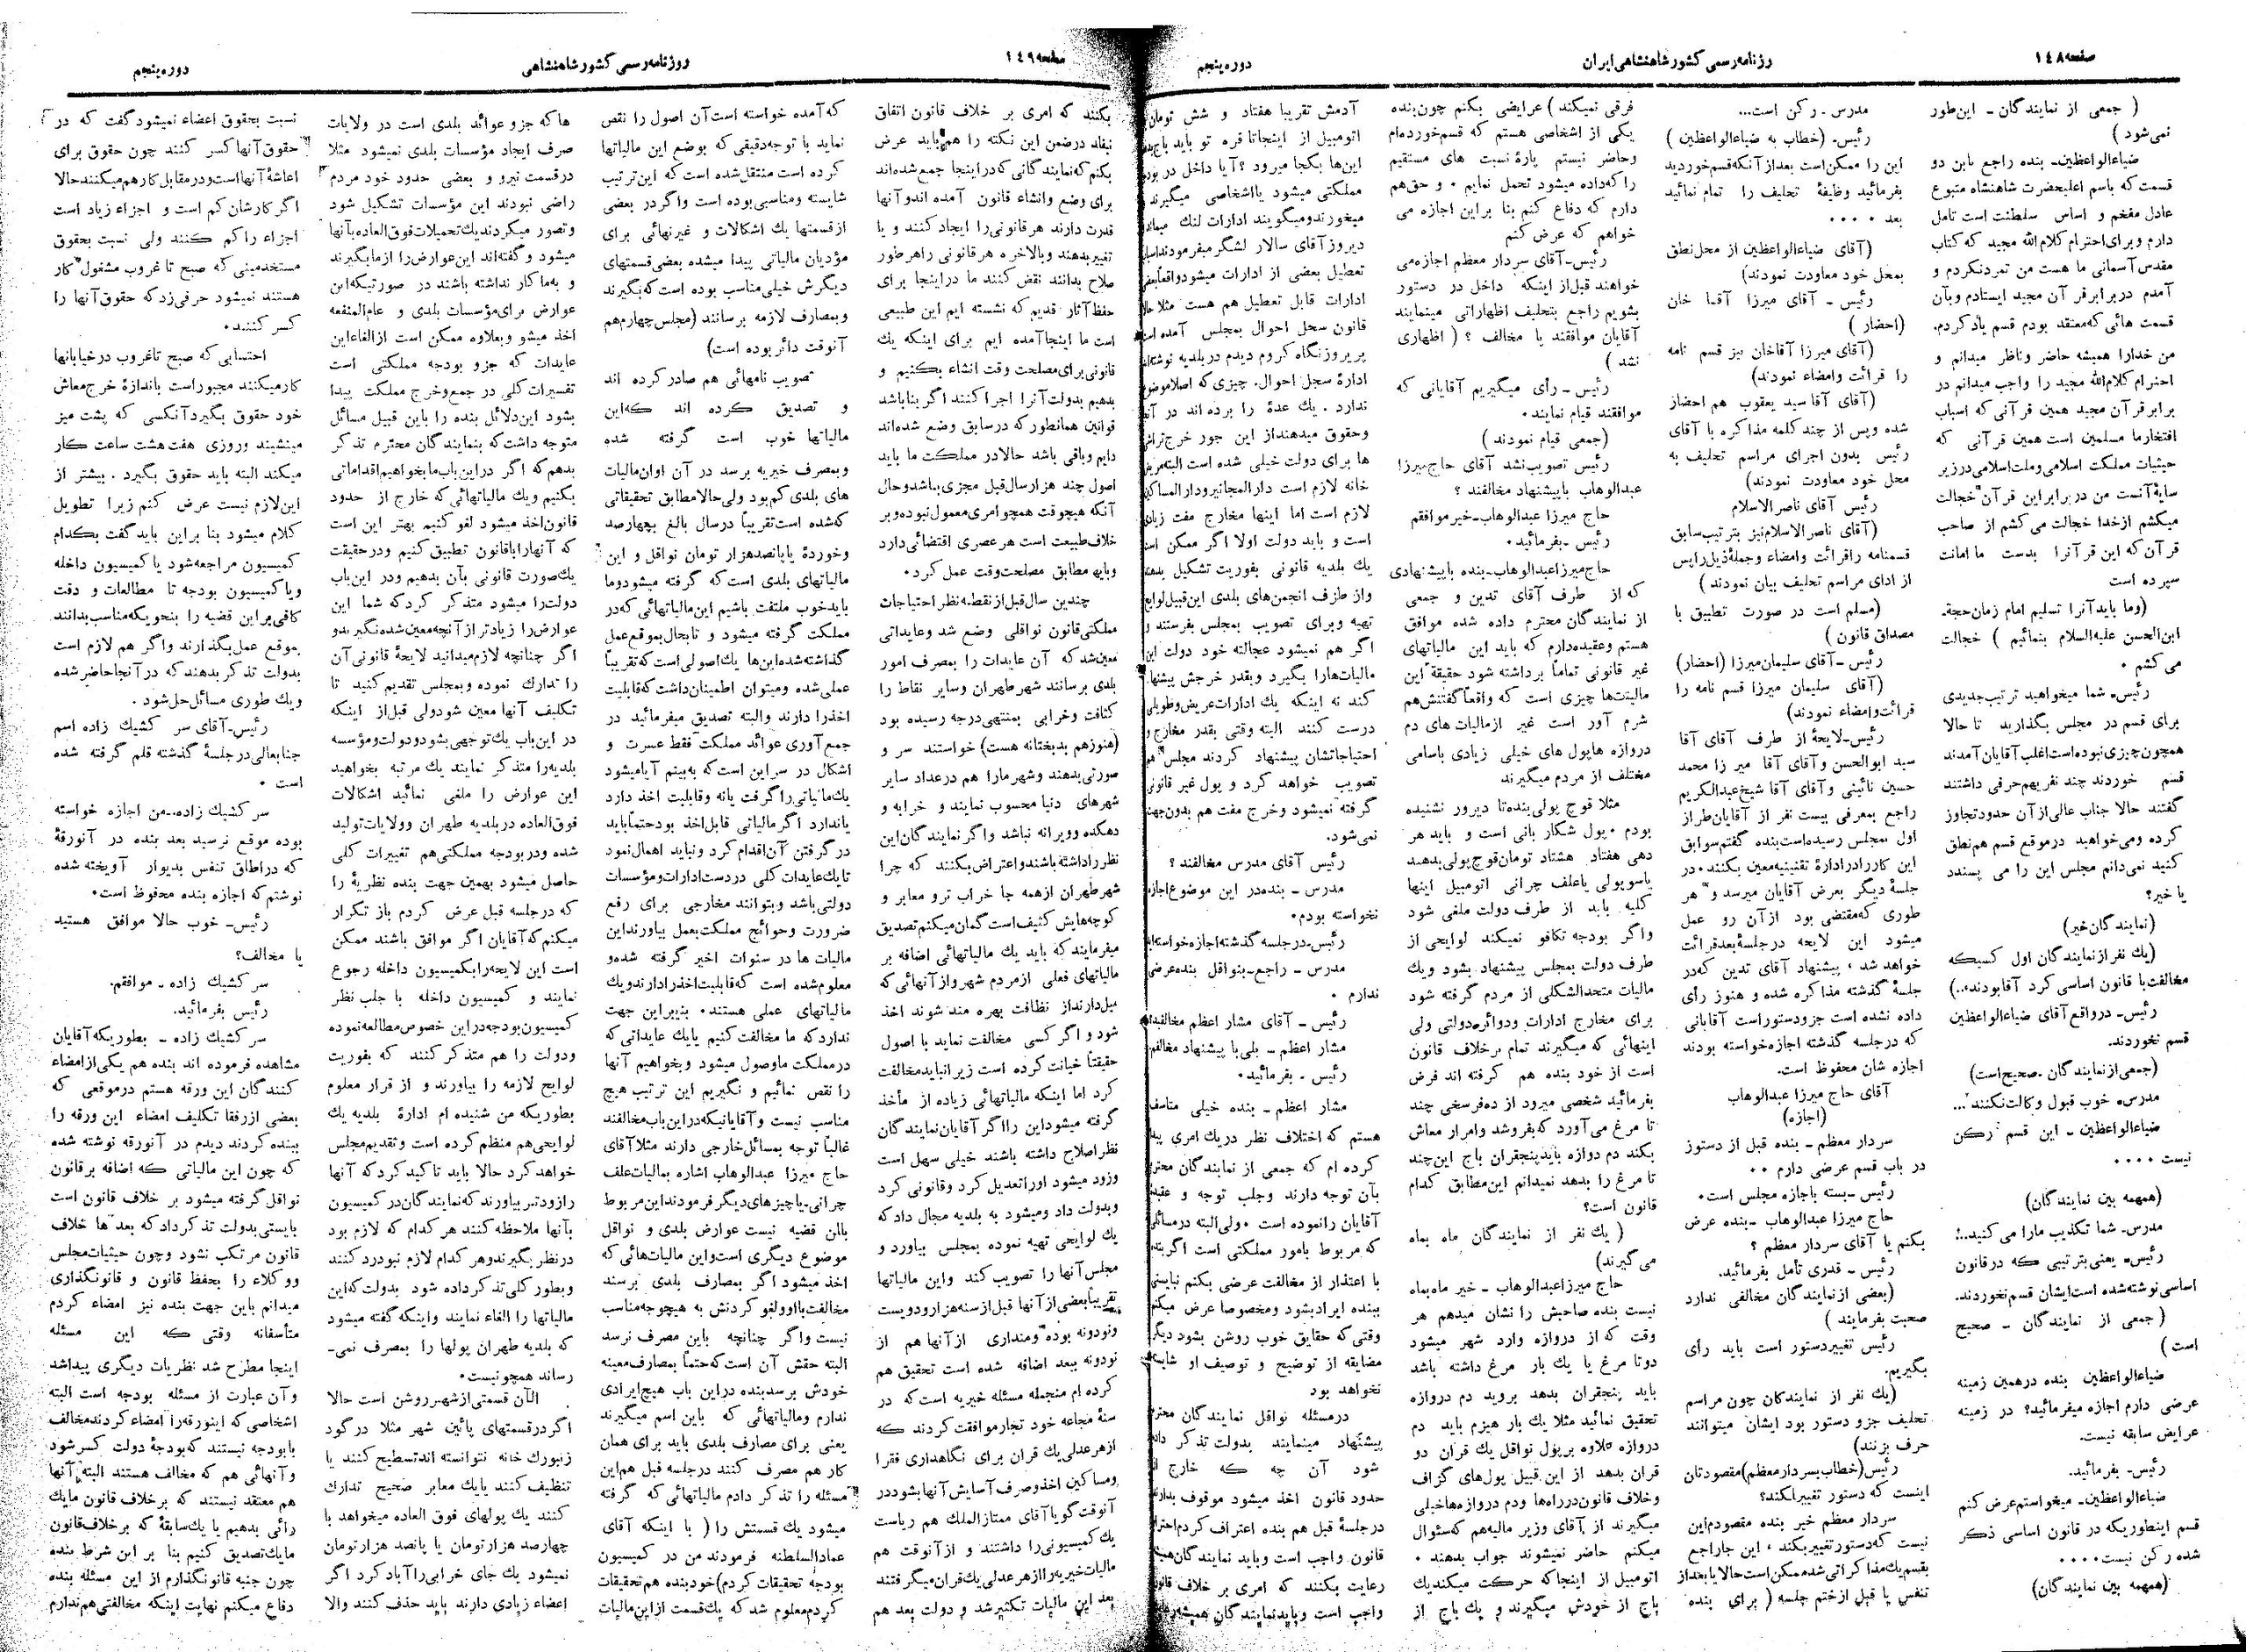 صفحه ١٤٨
روزنامه رسمی کشور شاهنشاهی ایران
دوره پنجم
( جمعی از نمایندگان ـ این‌طور
نمی‌شود )
ضیاءالواعظین ـ بنده راجع باین دو
قسمت که باسم اعلیحضرت شاهنشاه متبوع
عادل مفخم و اساس سلطنت است تامل
دارم و برای احترام کلام‌الله مجید که کتاب
مقدس آسمانی ما هست من تمرد نکردم و
آمدم در برابر قرآن مجید ایستادم و بآن
قسمت هائی که معتقد بودم قسم یاد کردم.
من خدا را همیشه حاضر و ناظر میدانم و
احترام کلام‌الله مجید را واجب میدانم در
برابر قرآن مجید همین قرآنی که اسباب
افتخار ما مسلمین است همین قرآنی که
حیثیات مملکت اسلامی و ملت اسلامی در زیر
سایهٔ آنست من در برابر این قرآن خجالت
میکشم از خدا خجالت می کشم از صاحب
قرآن که این قرآن را بدست ما امانت
سپرده است
(و ما باید آنرا تسلیم امام زمان حجة‌ـ
ابن‌الحسن علیه‌السلام بنمائیم ) خجالت
می کشم .
رئیس ـ شما میخواهید ترتیب جدیدی
برای قسم در مجلس بگذارید تا حالا
همچون چیزی نبوده است اغلب آقایان آمدند
قسم خوردند چند نفر یهم حرفی داشتند
گفتند حالا جناب عالی از آن حدود تجاوز
کرده و می‌خواهید در موقع قسم هم نطق
کنید نمی‌دانم مجلس این را می پسندد
یا خیر؟
(نمایندگان خیر)
(یك نفر از نمایندگان اول کسیکه
مخالفت با قانون اساسی کرد آقا بودند...)
رئیس ـ در واقع آقای ضیاءالواعظین
قسم نخوردند.
(جمعی از نمایندگان ـ صحیح است)
مدرس ـ خوب قبول وکالت نکنند ...
ضیاءالواعظین ـ این قسم رکن
نیست ....
(همهمه بین نمایندگان)
مدرس ـ شما تکذیب ما را می کنید..!
رئیس ـ یعنی بترتیبی که در قانون
اساسی نوشته شده است ایشان قسم نخوردند.
( جمعی از نمایندگان ـ صحیح
است )
ضیاءالواعظین بنده در همین زمینه
عرضی دارم اجازه میفرمائید؟ در زمینه
عرایض سابقه نیست.
رئیس ـ بفرمائید.
ضیاءالواعظین ـ میخواستم عرض کنم
قسم اینطوریکه در قانون اساسی ذکر
شده رکن نیست ....
(همهمه بین نمایندگان)
مدرس ـ رکن است...
رئیس ـ (خطاب به ضیاءالواعظین )
این را ممکن است بعد از آنکه قسم خوردید
بفرمائید وظیفهٔ تحلیف را تمام نمائید
بعد ....
(آقای ضیاءالواعظین از محل نطق
بمحل خود معاودت نمودند)
رئیس ـ آقای میرزا آقا خان
(احضار )
(آقای میرزا آقاخان نیز قسم نامه
را قرائت وامضاء نمودند)
(آقای آقا سید یعقوب هم احضار
شده و پس از چند کلمه مذاکره با آقای
رئیس بدون اجرای مراسم تحلیف به
محل خود معاودت نمودند)
رئیس آقای ناصرالاسلام
(آقای ناصرالاسلام نیز بترتیب سابق
قسمنامه را قرائت وامضاء و جملهٔ ذیل را پس
از ادای مراسم تحلیف بیان نمودند )
(مسلم است در صورت تطبیق با
مصداق قانون )
رئیس ـ آقای سلیمان میرزا (احضار)
(آقای سلیمان میرزا قسم نامه را
قرائت و امضاء نمودند)
رئیس ـ لایحهٔ از طرف آقای آقا
سید ابوالحسن و آقای آقا میرزا محمد
حسین نائینی و آقای آقا شیخ عبدالکریم
راجع بمعرفی بیست نفر از آقایان طراز
اول بمجلس رسیده است بنده گفتم سوابق
این کار را در ادارهٔ تقنینیه معین بکنند، در
جلسهٔ دیگر بعرض آقایان میرسد و هر
طوری که مقتضی بود از آن رو عمل
میشود این لایحه در جلسهٔ بعد قرائت
خواهد شد ، پیشنهاد آقای تدین که در
جلسهٔ گذشته مذاکره شده و هنوز رأی
داده نشده است جزو دستور است آقایانی
که در جلسه گذشته اجازه خواسته بودند
اجازه شان محفوظ است.
آقای حاج میرزا عبدالوهاب
(اجازه)
سردار معظم ـ بنده قبل از دستور
در باب قسم عرضی دارم ..
رئیس ـ بسته باجازه مجلس است.
حاج میرزا عبدالوهاب ـ بنده عرض
بکنم یا آقای سردار معظم ؟
رئیس ـ قدری تأمل بفرمائید.
(بعضی از نمایندگان مخالفی ندارد
صحبت بفرمایند )
رئیس تغییر دستور است باید رأی
بگیریم.
(یك نفر از نمایندگان چون مراسم
تحلیف جزو دستور بود ایشان میتوانند
حرف بزنند)
رئیس (خطاب بسردار معظم) مقصودتان
اینست که دستور تغییر بکند؟
سردار معظم خیر بنده مقصودم این
نیست که دستور تغییر بکند ، این جا راجع
بقسم یك مذاکراتی شده ممکن است حالا یا بعد از
تنفس یا قبل از ختم جلسه ( برای بنده
فرقی نمیکند ) عرایضی بکنم چون بنده
یکی از اشخاصی هستم که قسم خورده‌ام
و حاضر نیستم پارهٔ نسبت های مستقیم
را که داده میشود تحمل نمایم . و حق هم
دارم که دفاع کنم بنا بر این اجازه می
خواهم که عرض کنم
رئیس ـ آقای سردار معظم اجازه می
خواهند قبل از اینکه داخل در دستور
بشویم راجع بتحلیف اظهاراتی مینمایند
آقایان موافقند یا مخالف ؟ ( اظهاری
نشد )
رئیس ـ رأی میگیریم آقایانی که
موافقند قیام نمایند.
(جمعی قیام نمودند )
رئیس تصویب نشد آقای حاج میرزا
عبدالوهاب با پیشنهاد مخالفند ؟
حاج میرزا عبدالوهاب ـ خیر موافقم
رئیس ـ بفرمائید.
حاج میرزا عبدالوهاب ـ بنده با پیشنهادی
که از طرف آقای تدین و جمعی
از نمایندگان محترم داده شده موافق
هستم و عقیده دارم که باید این مالیاتهای
غیر قانونی تماماً برداشته شود حقیقة این
مالیتها چیزی است که واقعاً گفتنش هم
شرم آور است غیر از مالیات های دم
دروازه ها پول های خیلی زیادی باسامی
مختلف از مردم میگیرند
مثلا قوچ پولی بنده تا دیروز نشنیده
بودم . پول شکار بانی است و باید هر
دهی هفتاد هشتاد تومان قوچ پولی بدهند
یا سو پولی یا علف چرانی اتومبیل اینها
کلیه باید از طرف دولت ملغی شود
و اگر بودجه تکافو نمیکند لوایحی از
طرف دولت بمجلس پیشنهاد بشود و یك
مالیات متحدالشکلی از مردم گرفته شود
برای مخارج ادارات و دوائر دولتی ولی
اینهائی که میگیرند تمام برخلاف قانون
است از خود بنده هم گرفته اند فرض
بفرمائید شخصی میرود از ده فرسخی چند
تا مرغ می‌آورد که بفروشد و امرار معاش
بکند دم دوازه باید پنجقران باج این چند
تا مرغ را بدهد نمیدانم این مطابق کدام
قانون است؟
( یك نفر از نمایندگان ماه بماه
می گیرند)
حاج میرزا عبدالوهاب ـ خیر ماه بماه
نیست بنده صاحبش را نشان میدهم هر
وقت که از دروازه وارد شهر میشود
دوتا مرغ یا یك بار مرغ داشته باشد
باید پنجقران بدهد بروید دم دروازه
تحقیق نمائید مثلا یك بار هیزم باید دم
دروازه علاوه بر پول نواقل یك قران دو
قران بدهد از این قبیل پول‌های گزاف
و خلاف قانون در راه‌ها و دم دروازه‌ها خیلی
میگیرند از آقای وزیر مالیه هم که سئوال
میکنم حاضر نمیشوند جواب بدهند .
اتومبیل از اینجا که حرکت میکند یك
باج از خودش میگیرند و یك باج از
آدمش تقریبا هفتاد و شش تومان
اتومبیل از اینجا تا قره تو باید باج
این‌ها بکجا میرود ؟ آیا داخل در
مملکتی میشود یا اشخاصی میگیرند
میخورند و میگویند ادارات لنك
دیروز آقای سالار لشگر میفرمودند
تعطیل بعضی از ادارات میشود واقعاً
ادارات قابل تعطیل هم هست مثلا
قانون سجل احوال بمجلس آمده
پریروز نگاه کردم دیدم در بلدیه
ادارهٔ سجل احوال. چیزی که اصلا موضوع
ندارد . یك عدهٔ را برده اند در
و حقوق میدهند از این جور خرج
ها برای دولت خیلی شده است البته
خانه لازم است دارالمجانین و دارالمساکین
لازم است اما اینها مخارج مفت
است و باید دولت اولا اگر ممکن
یك بلدیه قانونی بفوریت تشکیل
و از طرف انجمن‌های بلدی این قبیل لوایح
تهیه و برای تصویب بمجلس بفرستند
اگر هم نمیشود عجالته خود دولت این
مالیات‌ها را بگیرد و بقدر خرجش پیشنهاد
کند نه اینکه یك ادارات عریض و طویل
درست کنند البته وقتی بقدر مخارج و
احتیاجاتشان پیشنهاد کردند مجلس هم
تصویب خواهد کرد و پول غیر قانونی
گرفته نمیشود و خرج مفت هم بدون جهت
نمی‌شود.
رئیس آقای مدرس مخالفند ؟
مدرس ـ بنده در این موضوع اجازه
نخواسته بودم.
رئیس ـ در جلسه گذشته اجازه خواسته‌اید
مدرس ـ راجع بنواقل بنده عرضی
ندارم .
رئیس ـ آقای مشار اعظم مخالفید؟
مشار اعظم ـ بلی با پیشنهاد مخالفم.
رئیس ـ بفرمائید.
مشار اعظم ـ بنده خیلی متاسف
هستم که اختلاف نظر در یك امری
کرده ام که جمعی از نمایندگان محترم
بآن توجه دارند و جلب توجه و
آقایان را نموده است . ولی البته در مسائلی
که مربوط بامور مملکتی است اگر بنده
با اعتذار از مخالفت عرضی بکنم نبایستی
ببنده ایراد بشود و مخصوصا عرض میکنم
وقتی که حقایق خوب روشن بشود دیگر
مضایقه از توضیح و توصیف او
نخواهد بود
در مسئله نواقل نمایندگان محترم
پیشنهاد مینمایند بدولت تذکر داده
شود آن چه که خارج از
حدود قانون اخذ میشود موقوف بدارند
در جلسهٔ قبل هم بنده اعتراف کردم احترام
قانون واجب است و باید نمایندگان همیشه
رعایت بکنند که امری بر خلاف قانون
واجب است و باید نمایندگان همیشه
صفحه ١٤٩
روزنامه رسمی کشور شاهنشاهی
دوره پنجم
بکنند که امری بر خلاف قانون اتفاق
نیفتد در ضمن این نکته را هم باید عرض
بکنم که نمایندگانی که در اینجا جمع شده‌اند
برای وضع و انشاء قانون آمده اند و آنها
قدرت دارند هر قانونی را ایجاد کنند و یا
تغییر بدهند و بالاخره هر قانونی را هر طور
صلاح بدانند نقض کنند ما در اینجا برای
حفظ آثار قدیم که نشسته ایم این طبیعی
است ما اینجا آمده ایم برای اینکه یك
قانونی برای مصلحت وقت انشاء بکنیم و
بدهیم بدولت آنرا اجرا کنند اگر بنا باشد
قوانین همانطور که در سابق وضع شده‌اند
دایم و باقی باشد حالا در مملکت ما باید
اصول چند هزار سال قبل مجزی باشد و حال
آنکه هیچوقت همچو امری معمول نبوده و بر
خلاف طبیعت است هر عصری اقتضائی دارد
و باید مطابق مصلحت وقت عمل کرد.
چندین سال قبل از نقطه نظر احتیاجات
مملکتی قانون نواقلی وضع شد و عایداتی
معین شد که آن عایدات را بمصرف امور
بلدی برسانند شهر طهران و سایر نقاط را
کثافت و خرابی بمنتهی درجه رسیده بود
(هنوز هم بدبختانه هست) خواستند سر و
صورتی بدهند و شهر ما را هم در عداد سایر
شهرهای دنیا محسوب نمایند و خرابه و
دهکده و ویرانه نباشد و اگر نمایندگان این
نظر را داشته باشند و اعتراض بکنند که چرا
شهر طهران از همه جا خراب تر و معابر و
کوچه‌هایش کثیف است گمان میکنم تصدیق
میفرمایند که باید یك مالیاتهائی اضافه بر
مالیاتهای فعلی از مردم شهر و از آنهائی که
میل دارند از نظافت بهره مند شوند اخذ
شود و اگر کسی مخالفت نماید با اصول
حقیقتاً خیانت کرده است زیرا نباید مخالفت
کرد اما اینکه مالیاتهائی زیاده از مأخذ
گرفته میشود این را اگر آقایان نمایندگان
نظر اصلاح داشته باشند خیلی سهل است
و زود میشود او را تعدیل کرد و قانونی کرد
و بدولت داد و میشود به بلدیه مجال داد که
یك لوایحی تهیه نموده بمجلس بیاورد و
مجلس آنها را تصویب کند و این مالیاتها
تقریباً بعضی از آنها قبل از سنه هزار و دویست
و نود و نه بوده و مقداری از آنها هم از
نود و نه ببعد اضافه شده است تحقیق هم
کرده ام منجمله مسئله خیریه است که در
سنهٔ مجاعه خود تجار موافقت کردند که
از هر عدلی یك قران برای نگاهداری فقرا
و مساکین اخذ و صرف آسایش آنها بشود در
آنوقت گویا آقای ممتازالملك هم ریاست
یك کمیسیونی را داشتند و از آنوقت هم
مالیات خیریه را از هر عدلی یك قران میگرفتند
بعد این مالیات تکثیر شد و دولت بعد هم
که آمده خواسته است آن اصول را نقص
نماید با توجه دقیقی که بوضع این مالیاتها
کرده است منتقل شده است که این ترتیب
شایسته و مناسبی بوده است و اگر در بعضی
از قسمتها یك اشکالات و غیر نهائی برای
مؤدیان مالیاتی پیدا میشده بعضی قسمتهای
دیگرش خیلی مناسب بوده است که بگیرند
و بمصارف لازمه برسانند (مجلس چهارم هم
آنوقت دائر بوده است)
تصویب نامهائی هم صادر کرده اند
و تصدیق کرده اند که این
مالیاتها خوب است گرفته شده
و بمصرف خیریه برسد در آن اوان مالیات
های بلدی کم بود ولی حالا مطابق تحقیقاتی
که شده است تقریباً در سال بالغ بچهارصد
و خوردهٔ یا پانصد هزار تومان نواقل و این
مالیاتهای بلدی است که گرفته میشود و ما
باید خوب ملتفت باشیم این مالیاتهائی که در
مملکت گرفته میشود و تا بحال بموقع عمل
گذاشته شده این‌ها یك اصولی است که تقریباً
عملی شده و میتوان اطمینان داشت که قابلیت
اخذ را دارند و البته تصدیق میفرمائید در
جمع آوری عوائد مملکت فقط عسرت و
اشکال در سر این است که به بینم آیا میشود
یك مالیاتی را گرفت یا نه و قابلیت اخذ دارد
یا ندارد اگر مالیاتی قابل اخذ بود حتماً باید
در گرفتن آن اقدام کرد و نباید اهمال نمود
تا یك عایدات کلی در دست ادارات و مؤسسات
دولتی باشد و بتوانند مخارجی برای رفع
ضرورت و حوائج مملکت بعمل بیاورند این
مالیات ها در سنوات اخیر گرفته شده و
معلوم شده است که قابلیت اخذ را دارند و یك
مالیاتهای عملی هستند. بنابراین جهت
ندارد که ما مخالفت کنیم یا یك عایداتی که
در مملکت ما وصول میشود و بخواهیم آنها
را نقص نمائیم و نگیریم این ترتیب هیچ
مناسب نیست و آقایانیکه در این باب مخالفند
غالباً توجه بمسائل خارجی دارند مثلا آقای
حاج میرزا عبدالوهاب اشاره بمالیات علف
چرانی ـ یا چیزهای دیگر فرمودند این مربوط
باین قضیه نیست عوارض بلدی و نواقل
موضوع دیگری است و این مالیات‌هائی که
اخذ میشود اگر بمصارف بلدی برسند
مخالفت با او و لغو کردنش به هیچوجه مناسب
نیست و اگر چنانچه باین مصرف نرسد
البته حقش آن است که حتماً بمصارف معینه
خودش برسد بنده در این باب هیچ ایرادی
ندارم و مالیاتهائی که باین اسم میگیرند
یعنی برای مصارف بلدی باید برای همان
کار هم مصرف کنند در جلسه قبل هم این
مسئله را تذکر دادم مالیاتهائی که گرفته
میشود یك قسمتش را ( با اینکه آقای
عمادالسلطنه فرمودند من در کمیسیون
بودجه تحقیقات کردم) خود بنده هم تحقیقات
کردم معلوم شد که یك قسمت از این مالیات
ها که جزو عوائد بلدی است در ولایات
صرف ایجاد مؤسسات بلدی نمیشود مثلا
در قسمت نیرو و بعضی حدود خود مردم
راضی نبودند این مؤسسات تشکیل شود
و تصور میکردند یك تحمیلات فوق العاده بآنها
میشود و گفته‌اند این عوارض را از ما بگیرند
و به ما کار نداشته باشند در صورتیکه این
عوارض برای مؤسسات بلدی و عام‌المنفعه
اخذ میشو و بعلاوه ممکن است از الغاء این
عایدات که جزو بودجه مملکتی است
تفسیرات کلی در جمع و خرج مملکت پیدا
بشود این دلائل بنده را باین قبیل مسائل
متوجه داشت که بنمایندگان محترم تذکر
بدهم که اگر در این باب ما بخواهیم اقداماتی
بکنیم و یك مالیاتهائی که خارج از حدود
قانون اخذ میشود لغو کنیم بهتر این است
که آنها را با قانون تطبیق کنیم و در حقیقت
یك صورت قانونی بآن بدهیم و در این باب
دولت را میشود متذکر کرد که شما این
عوارض را زیادتر از آنچه معین شده نگیرید و
اگر چنانچه لازم میدانید لایحهٔ قانونی آن
را تدارك نموده و بمجلس تقدیم کنید تا
تکلیف آنها معین شود ولی قبل از اینکه
در این باب یك توجهی بشود و دولت و مؤسسه
بلدیه را متذکر نمایند یك مرتبه بخواهید
این عوارض را ملغی نمائید اشکالات
فوق‌العاده در بلدیه طهران و ولایات تولید
شده و در بودجه مملکتی هم تغییرات کلی
حاصل میشود بهمین جهت بنده نظریهٔ را
که در جلسه قبل عرض کردم باز تکرار
میکنم که آقایان اگر موافق باشند ممکن
است این لایحه را بکمیسیون داخله رجوع
نمایند و کمیسیون داخله با جلب نظر
کمیسیون بودجه در این خصوص مطالعه نموده
و دولت را هم متذکر کنند که بفوریت
لوایح لازمه را بیاورند و از قرار معلوم
بطوریکه من شنیده ام ادارهٔ بلدیه یك
لوایحی هم منظم کرده است و تقدیم مجلس
خواهد کرد حالا باید تاکید کرد که آنها
را زودتر بیاورند که نمایندگان در کمیسیون
بآنها ملاحظه کنند هر کدام که لازم بود
در نظر بگیرند و هر کدام لازم نبود رد کنند
و بطور کلی تذکر داده شود بدولت که این
مالیاتها را الغاء نمایند و اینکه گفته میشود
که بلدیه طهران پولها را بمصرف نمی‌ـ
رساند همچو نیست.
الآن قسمتی از شهر روشن است حالا
اگر در قسمتهای پائین شهر مثلا در گود
زنبورك خانه نتوانسته اند تسطیح کنند یا
تنظیف کنند یا یك معابر صحیح تدارك
کنند یك پولهای فوق العاده میخواهد با
چهار صد هزار تومان یا پانصد هزار تومان
نمیشود یك جای خرابی را آباد کرد اگر
اعضاء زیادی دارند باید حذف کنند والا
نسبت بحقوق اعضاء نمیشود گفت که در
حقوق آنها کسر کنند چون حقوق برای
اعاشهٔ آنها است و در مقابل کار هم میکنند حالا
اگر کارشان کم است و اجزاء زیاد است
اجزاء را کم کنند ولی نسبت بحقوق
مستخدمینی که صبح تا غروب مشغول کار
هستند نمیشود حرفی زد که حقوق آنها را
کسر کنند.
احتسابی که صبح تا غروب در خیابانها
کار میکنند مجبور است باندازهٔ خرج معاش
خود حقوق بگیرد آنکسی که پشت میز
مینشیند و روزی هفت هشت ساعت کار
میکند البته باید حقوق بگیرد . بیشتر از
این لازم نیست عرض کنم زیرا تطویل
کلام میشود بنا بر این باید گفت بکدام
کمیسیون مراجعه شود یا کمیسیون داخله
و یا کمیسیون بودجه تا مطالعات و دقت
کافی بر این قضیه را بنحویکه مناسب بدانند
بموقع عمل بگذارند و اگر هم لازم است
بدولت تذکر بدهند که در آنجا حاضر شده
و یك طوری مسائل حل شود .
رئیس ـ آقای سر کشیك زاده اسم
جنابعالی در جلسهٔ گذشته قلم گرفته شده
است .
سر کشیك زاده ـ من اجازه خواسته
بوده موقع نرسید بعد بنده در آنورقهٔ
که در اطاق تنفس بدیوار آویخته شده
نوشتم که اجازه بنده محفوظ است.
رئیس ـ خوب حالا موافق هستید
یا مخالف؟
سر کشیك زاده ـ موافقم.
رئیس بفرمائید.
سر کشیك زاده ـ بطوریکه آقایان
مشاهده فرموده اند بنده هم یکی از امضاء
کنندگان این ورقه هستم در موقعی که
بعضی از رفقا تکلیف امضاء این ورقه را
ببنده کردند دیدم در آنورقه نوشته شده
که چون این مالیاتی که اضافه بر قانون
نواقل گرفته میشود بر خلاف قانون است
بایستی بدولت تذکر داد که بعدها خلاف
قانون مرتکب نشود و چون حیثیات مجلس
و وکلاء را بحفظ قانون و قانونگذاری
میدانم باین جهت بنده نیز امضاء کردم
متأسفانه وقتی که این مسئله
اینجا مطرح شد نظریات دیگری پیدا شد
و آن عبارت از مسئله بودجه است البته
اشخاصی که اینورقه را امضاء کردند مخالف
با بودجه نیستند که بودجهٔ دولت کسر شود
و آنهائی هم که مخالف هستند البته آنها
هم معتقد نیستند که برخلاف قانون ما یك
رائی بدهیم یا یك سابقهٔ که بر خلاف قانون
ما یك تصدیق کنیم بنا بر این شرط بنده
چون جنبه قانونگذارم از این مسئله بنده
دفاع میکنم نهایت اینکه مخالفتی هم ندارم